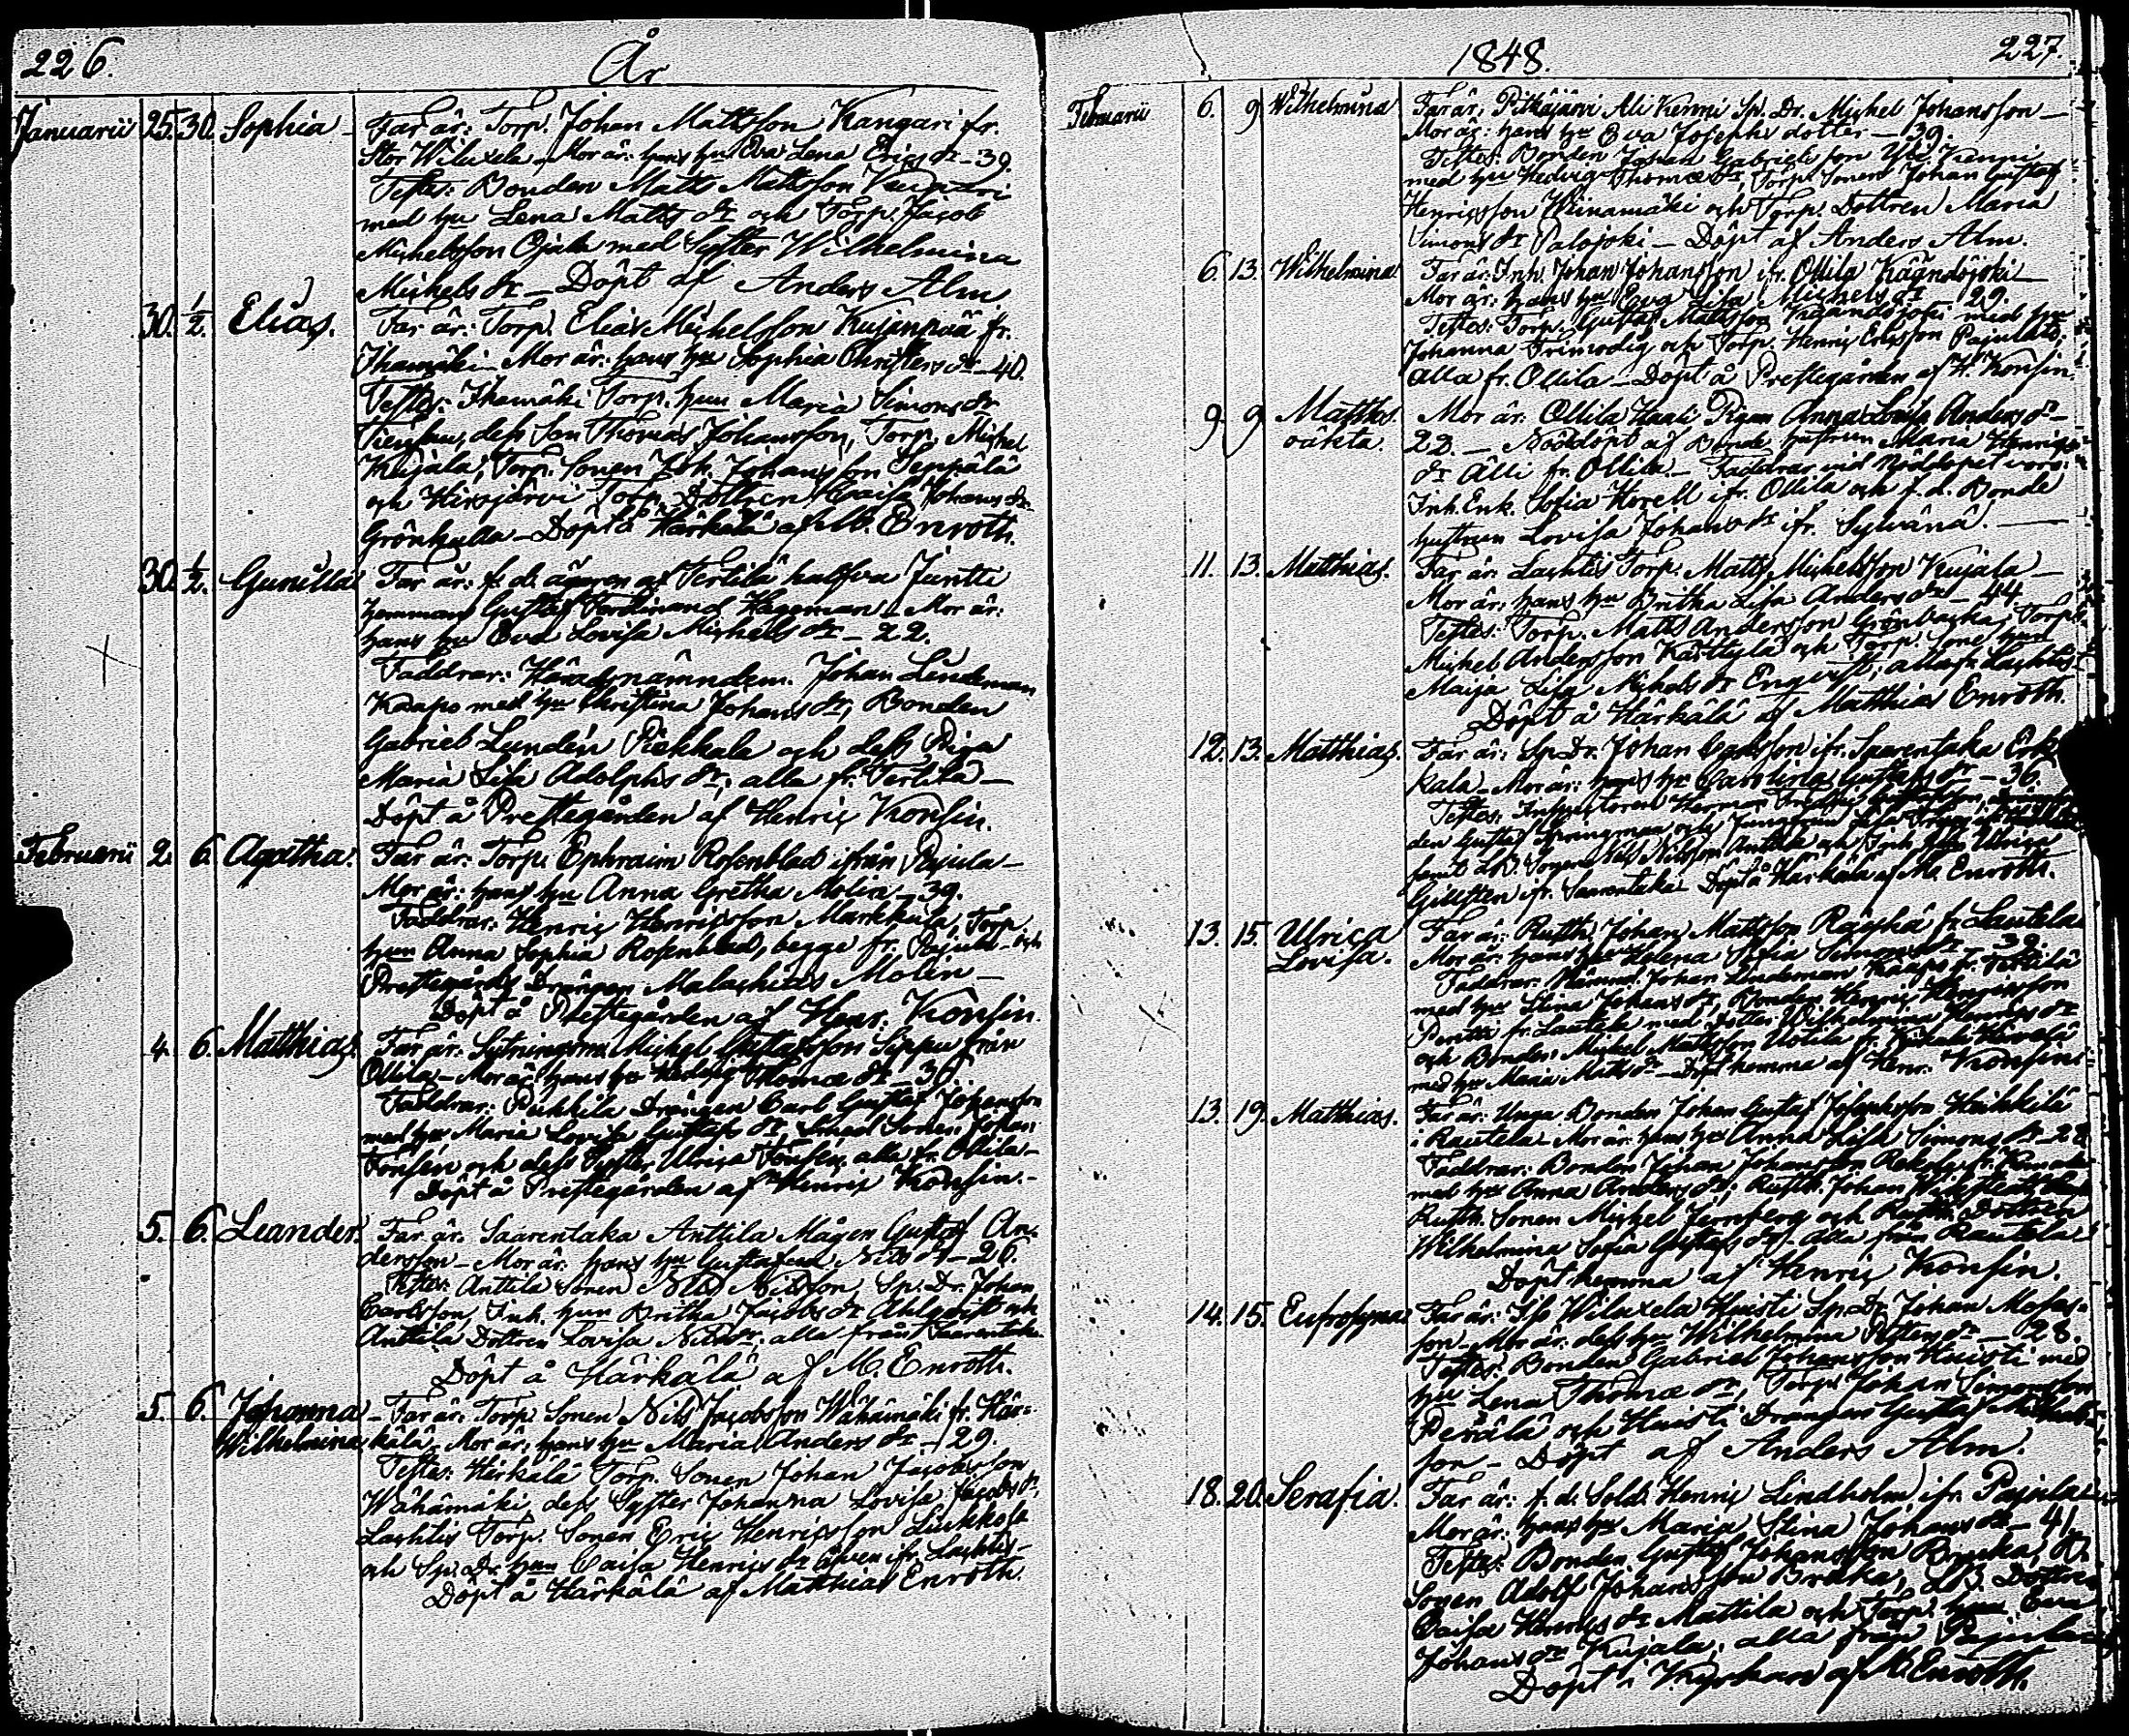 226. År
Januarii 25. 30. Sophia - Far är: Torp. Johan Mattsson Kangari fr.
Stor Wiluxela - Mor är: hans hu Eva Lena Erics dr - 39.
Testes: Bonden Matts Mattsson
med hu Lena Matts dr och Torp. Jacob
Michelsson Ojala med Syster Wilhelmina
Michels dr - Döpt af Anders Alm
30. 1/2. Elias. Far är: Torp. Elias Michelsson Kujanpää fr.
Ihamäki - Mor är: hans hu Sophia Christers dr - 40.
Testes: Ihamäki Torp. hun Maria Simons dr
dess Son Thomas Johansson, Torp. Michel
Kujala, Torp. Sonen Joh. Johansson Seppälä
och Hirsjärvi Torp. Dottren Johans dr
Grönkulla - Döpt å Härkälä af M. Enroth.
30. 1/2. Gunilla Far är: f.d. ägaren af Tertilä halfva Juntti
hemman Gustaf Ferdinand Hageman - Mor är:
hans hu Eva Lovisa Michels dr - 22.
Faddrar: Häradsnämndem. Johan Lindeman
Kaapo med hu Christina Johans dr, Bonden
Gabriel Lundén Piekkala och dess Piga
Maria Lisa Adolphs dr, alla fr. Tertilä -
Döpt å Prestegården af Henric Konsin.
Februarii 2. 6. Agatha. Far är: Torp. Ephraim Rosenblad ifrån Pajula -
Mor är: hans hu Anna Gretha Molin - 39.
Faddrar: Henric Henricsson Markkula, Torp.
hun Anna Sophia Rosenblad, begge fr. Pajula - och
Prestegårds Drängen Malachias Molin -
Döpt å Prestegården af Henr. Konsin.
4. 6. Matthias. Far är: Sytningsm. Michel Gustafsson Sippu från
Ollila - Mor är: hans hu Hedvig Thomæ dr - 36.
Faddrar: Drängen Carl Gustaf Johansson
med hu Maria Lovisa Gustafs dr Smed Sonen Johan
Fonsén och dess Syster Ulrica Fonsén, alla fr. Ollila -
Döpt å Prestegården af Henric Konsin. -
5. 6. Leander. Far är: Saarentaka Anttila Mågen Gustaf An-
dersson - Mor är: hans hu Gustafava Nils dr - 26.
Testes: Anttila Sonen Nils Nilsson, Sp. Dr. Johan
Carlsson, Inh. hun Britha Jacobs dr Ahlqvist och
Anttila Dottren Lovisa Nils dr, alla från Saarentaka.
Döpt å Härkälä af M. Enroth.
5. 6. Johanna - Far är: Torp. Sonen Nils Jacobsson Wähämäki fr. Här-
Wilhelmina kälä - Mor är: hans hu Maria Anders dr - 29.
Testes: Härkälä Torp. Sonen Johan Jacobsson
Wähämäki, dess Syster Johanna Lovisa Jacobs dr,
Lachtis Torp. Sonen Eric Henricsson
och Sp. Dr. hun Caisa Henrics dr även ifr. Lachtis -
Döpt å Härkälä af Matthias Enroth.
1848. 227.
Februarii 6. 9 Wilhelmina Far är: Pitkäjärvi Ali Kenni Sp. Dr. Michel Johansson -
Mor är: hans hu Eva Josephs dotter - 39.
Testes: Bonden Johan Gabrielsson Yli Kenni
med hu Hedvig Thomæ dr, Torp. Sonen Johan Gustaf
Henricsson Wiinamäki och Torp. Dottren Maria
Simons dr Palojoki - Döpt af Anders Alm.
6. 13. Wilhelmina Far är: Inh. Johan Johansson ifr. Ollila Käändöjoki -
Mor är: hans hu Eva Lisa Michels dr - 29.
Testes: Torp. Gustaf Mattsson Käändöjoki med hu
Johanna Frimodig och Torp. Henric Ericsson
alla fr. Ollila - Döpt å Prestegården af H. Konsin.
9. 9 Matths Mor är: Ollila Pigan Anna Lovisa Anders dr -
oäkta. 22. - Nöddöpt af Bonde hustrun Maria Henrics
dr Alli fr. Ollila - Faddrar vid Nöddopet voro:
Inh. Enk. Sofia Horell ifr. Ollila och f.d. Bonde
hustrun Lovisa Johans dr ifr. Sylvänä. -
11. 13. Matthias. Far är: Lachtis Torp. Matts Michelsson Kujala -
Mor är: hans hu Britha Lisa Anders dr - 44
Testes: Torp. Matts Andersson Grönbacka, Torp.
Michel Andersson Karttyla och Torp. Sone hun
Maija Lisa Michels dr Engvist, alla fr. Lachtis -
Döpt å Härkälä af Matthias Enroth.
12. 13. Matthias. Far är: Sp. Dr. Johan Carlsson ifr. Saarentaka
kala - Mor är: hans hu Carolina Gustafs dr - 36.
Testes: Inspectoren Herman
den Gustaf och Jungfrun
samt Sonen Nils Nilsson Anttila och Inh. hun Ulrica
Gillsten ifr. Saarentaka Döpt å Härkälä af M. Enroth.
13. 15. Ulrica Far är: Rusth. Johan Mattsson Räyhä fr. Lautela
Lovisa. Mor är: hans hu Helena Sofia Simons dr - 39.
Faddrar: Nämnd. Johan Lindeman Kaapo fr. Tertilä
med hu Stina Johans dr, Bonden Henric Henricsson
Penttі fr. Lautela med dotter Wilhelmina Henrics dr
och Bonden Michel Mattsson Uotila fr.
med hu Maria Matts dr - Döpt hemma af Henr. Konsin
13. 19. Matthias. Far är: Unga Bonden Johan Gustaf Josephsson Heikkilä
i Rautela - Mor är: hans hu Anna Lisa Simons dr - 28
Faddrar: Bonden Johan Johansson
med hu Anna Anders dr, Rusth. Johan
Rusth. Sonen Michel Jernberg och Rusth. Dottren
Wilhelmina Sofia Gustafs dr - alla från Rautela
Döpt hemma af Henric Konsin.
14. 15. Eufrosyna Far är: Iso Wiluxela Huisti Sp. Dr. Johan Moses-
son - Mor är: dess hu Wilhelmina Petters dr - 28.
Testes: Bonden Gabriel Johansson Huisti med
hu Lena Thomæ dr, Torp. Johan Simonsson
Perälä och Huisti Drängen Gustaf
son - Döpt af Anders Alm.
18. 20. Serafia. Far är: f.d. Sold. Henric Lindholm ifr. Pajula -
Mor är: hans hu Maria Stina Johans dr - 41.
Testes: Bonden Gustaf Johansson
Sonen Adolf Johansson Dottren
Caisa Henrics dr Mattila och Torp. hun Eva
Johans dr Kujala, alla från Pajula -
Döpt i Kyrkan af M. Enroth.